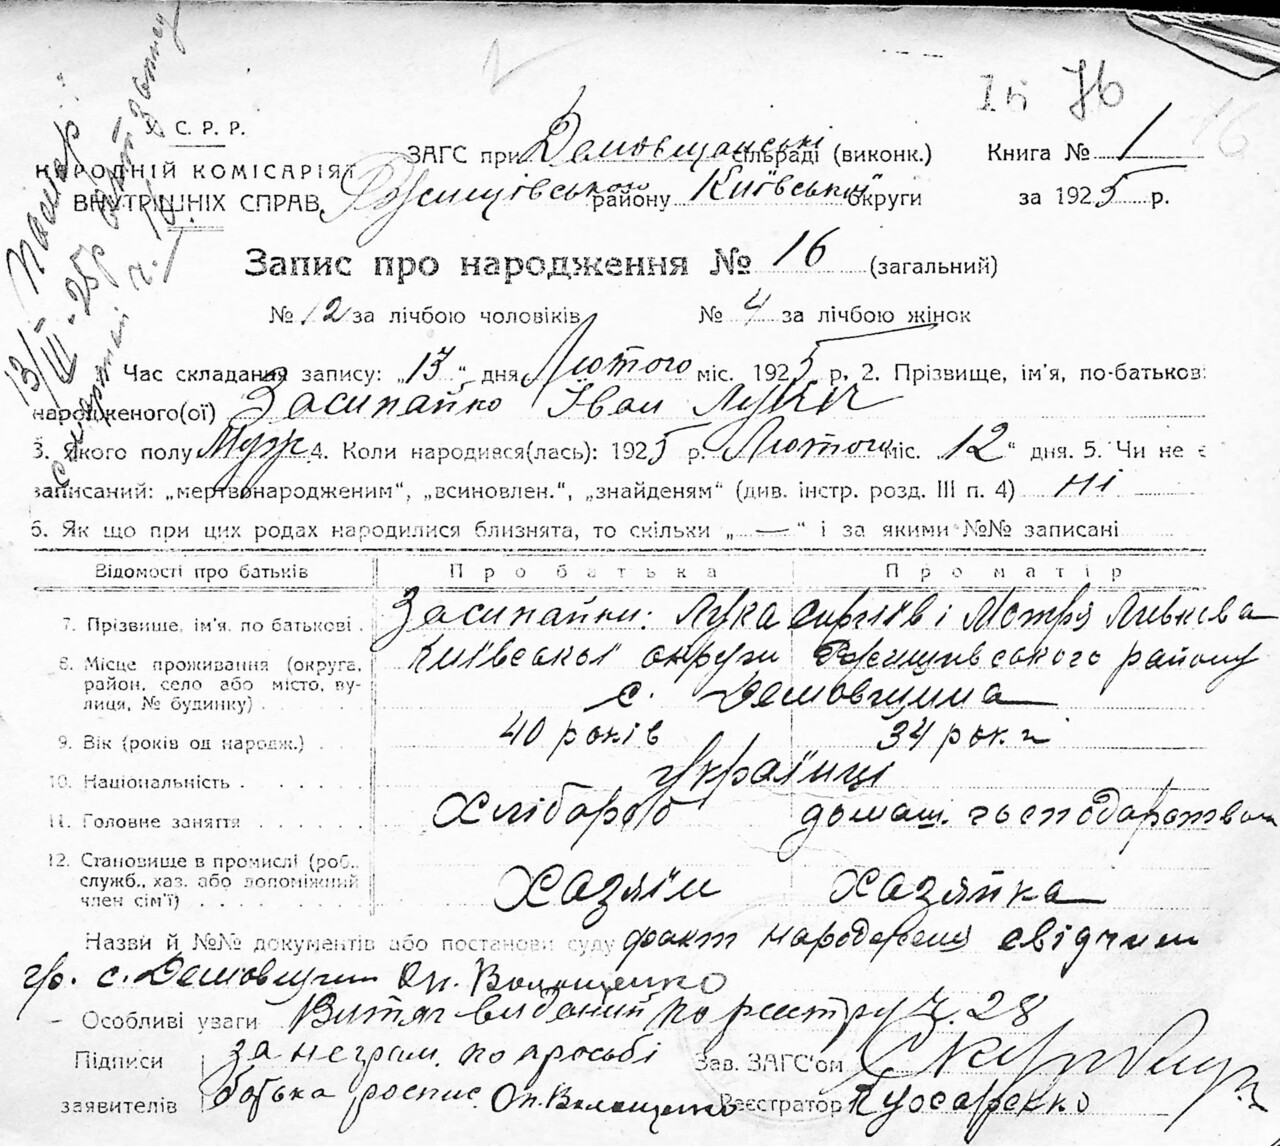 16 76
16
У. С. Р. Р.
НАРОДНІЙ КОМІСАРІЯТ
ВНУТРІШНІХ СПРАВ
Помер
13/III-25р
ЗАГС при Демовщанські сільраді (виконк.)
Ржищівського району Київської округи
Книга № 1
за 1925 р.
Запис про народження № 16 (загальний)
№ 12 за лічбою чоловіків № 4 за лічбою жінок
Час складання запису: „13“ дня Лютого міс. 1925 р. 2. Прізвище, ім'я, по-батькові
народженого(ої) Засипайко Іван Луки
3. Якого полу Муж. 4. Коли народився(лась): 1925 р. Лютого міс. „12“ дня. 5. Чи не є
записаний: „мертвонародженим“, „всиновлен.“, „знайденям“ (див. інстр. розд. III п. 4) ні
6. Як що при цих родах народилися близнята, то скільки „—“ і за якими №№ записані
Відомості про батьків Про батька Про матір
7. Прізвище, ім'я, по батькові Засипайки: Лука і Мотря
8. Місце проживання (округа, район, село або місто, вулиця, № будинку) Київської округи Ржищівського району
с. Демовщина
9. Вік (років од народж.) 40 років 34 рок.
10. Національність українці
11. Головне заняття Хлібороб домаш. господарством
12. Становище в промислі (роб., служб., хаз. або допоміжний член сім'ї) Хазяїн Хазяйка
Назви й №№ документів або постанови суду факт народження свідчит
гр. с. Демовщини Оп. Волощенко
Особливі уваги Витяг виданий по реєстру ч. 28
Підписи за неграм. по просьбі Зав. ЗАГС'ом
заявителів батька роспис. Оп. Волощенко Реєстратор